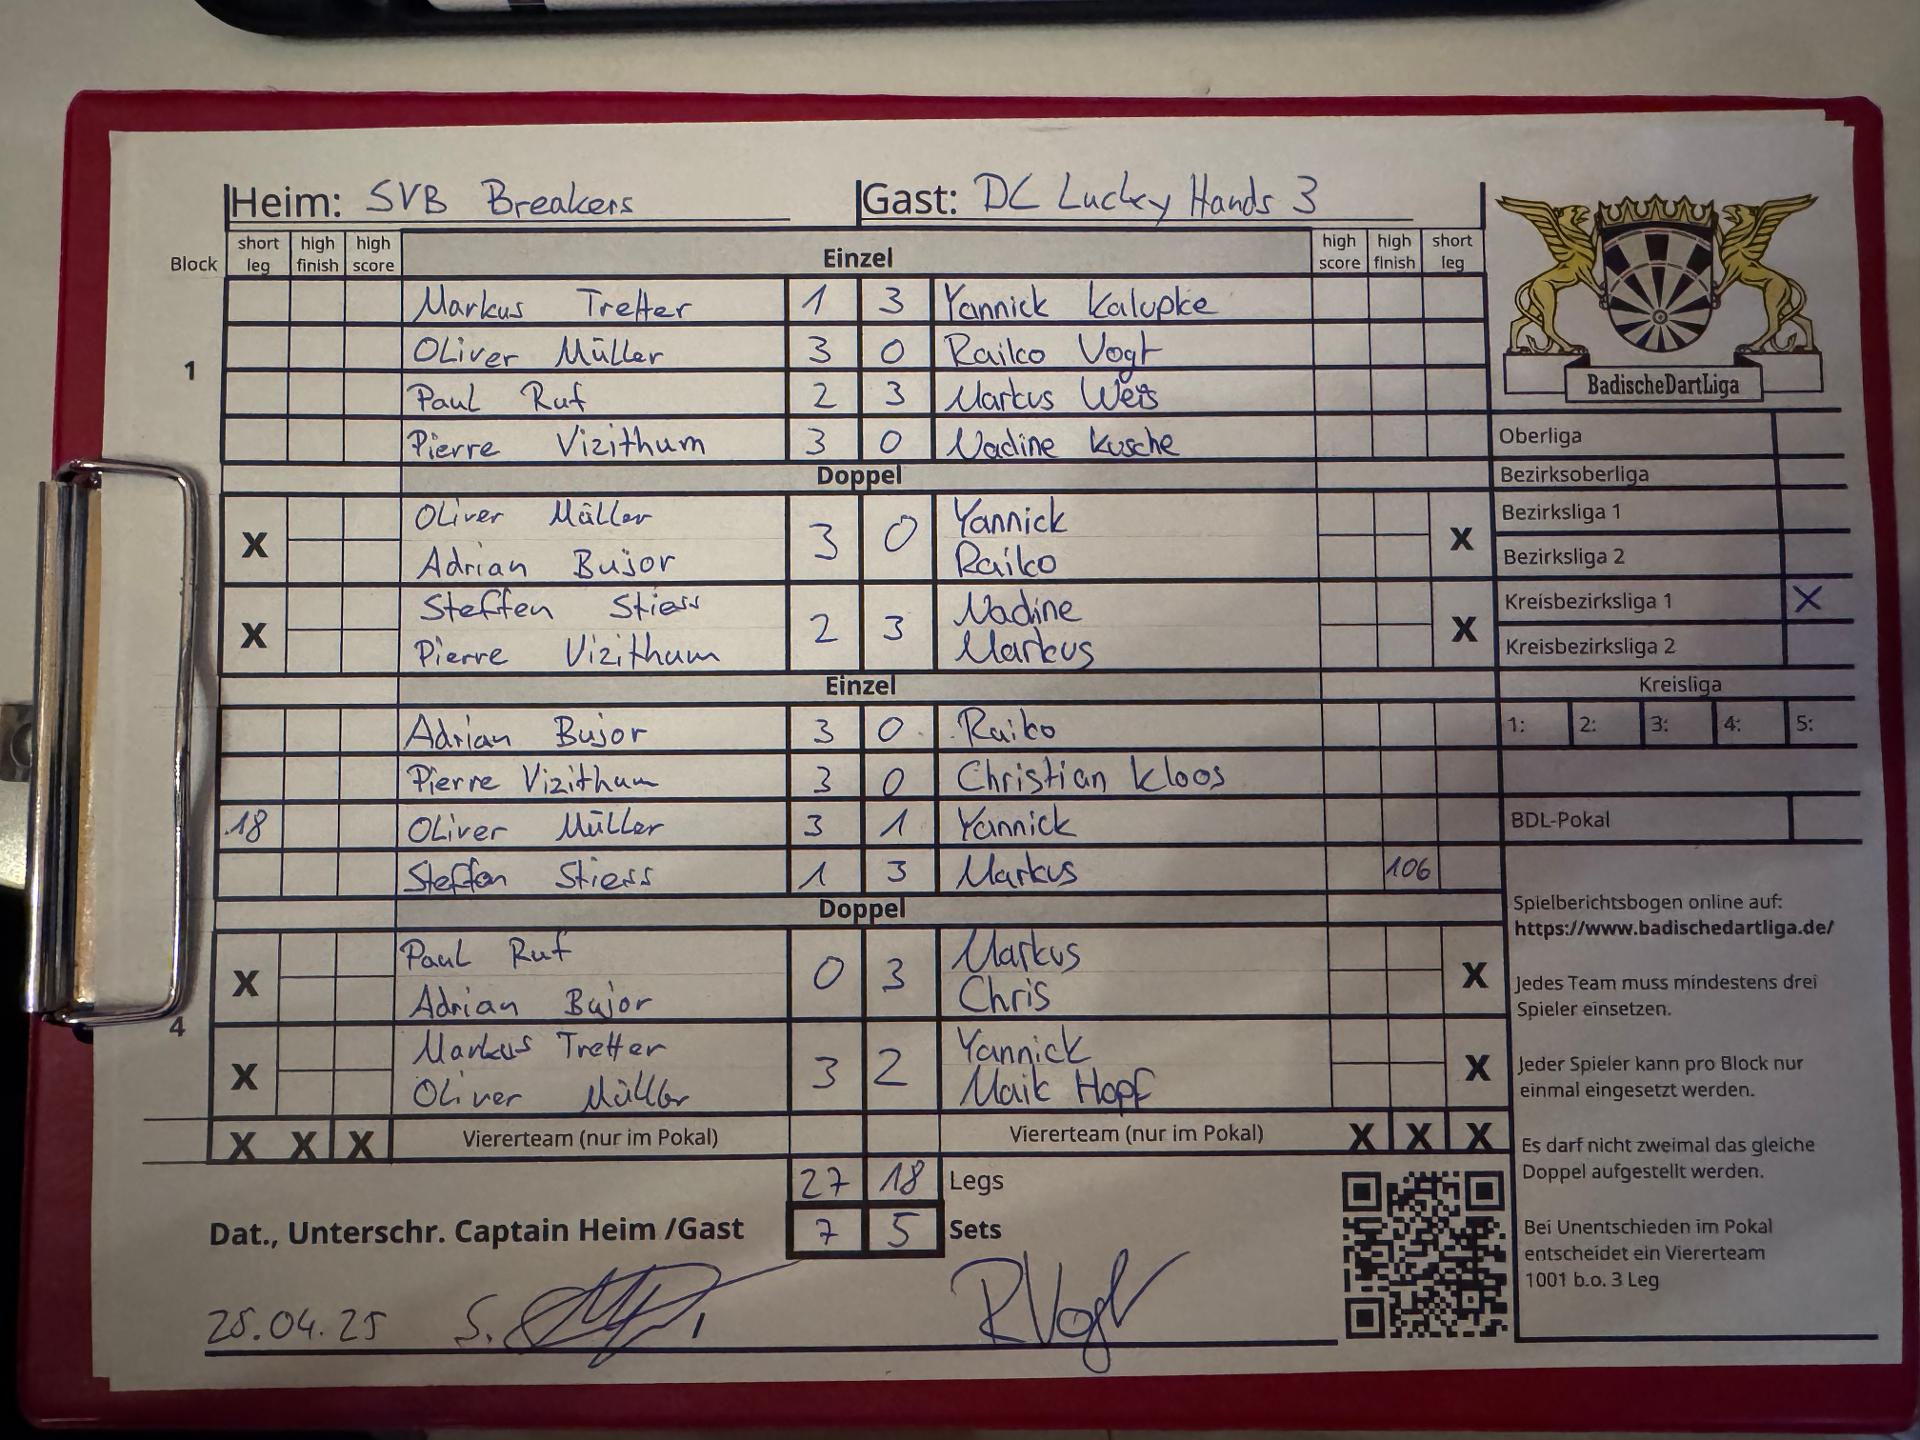 Heim: SVB Breakers Gast: DC Lucky Hands 3
Block short leg high finish high score Einzel high score high finish short leg
Markus Tretter 1 3 Yannick Kalupke
1 Oliver Müller 3 0 Raiko Vogt
Paul Ruf 2 3 Markus Weis
Pierre Vizithum 3 0 Nadine Kusche
Doppel
X Oliver Müller 3 0 Yannick X
Adrian Bujor Raiko
X Steffen Stiess 2 3 Nadine X
Pierre Vizithum Markus
Einzel
Adrian Bujor 3 0 Raiko
Pierre Vizithum 3 0 Christian Kloos
18 Oliver Müller 3 1 Yannick
Steffen Stiess 1 3 Markus 106
Doppel
X Paul Ruf 0 3 Markus X
Adrian Bujor Chris
4
X Markus Tretter 3 2 Yannick X
Oliver Müller Maik Hopf
X X X Viererteam (nur im Pokal) Viererteam (nur im Pokal) X X X
27 18 Legs
Dat., Unterschr. Captain Heim /Gast 7 5 Sets
25.04.25 S. RVogt
BadischeDartLiga
Oberliga
Bezirksoberliga
Bezirksliga 1
Bezirksliga 2
Kreisbezirksliga 1 X
Kreisbezirksliga 2
Kreisliga
1: 2: 3: 4: 5:
BDL-Pokal
Spielberichtsbogen online auf:
https://www.badischedartliga.de/
Jedes Team muss mindestens drei
Spieler einsetzen.
Jeder Spieler kann pro Block nur
einmal eingesetzt werden.
Es darf nicht zweimal das gleiche
Doppel aufgestellt werden.
Bei Unentschieden im Pokal
entscheidet ein Viererteam
1001 b.o. 3 Leg